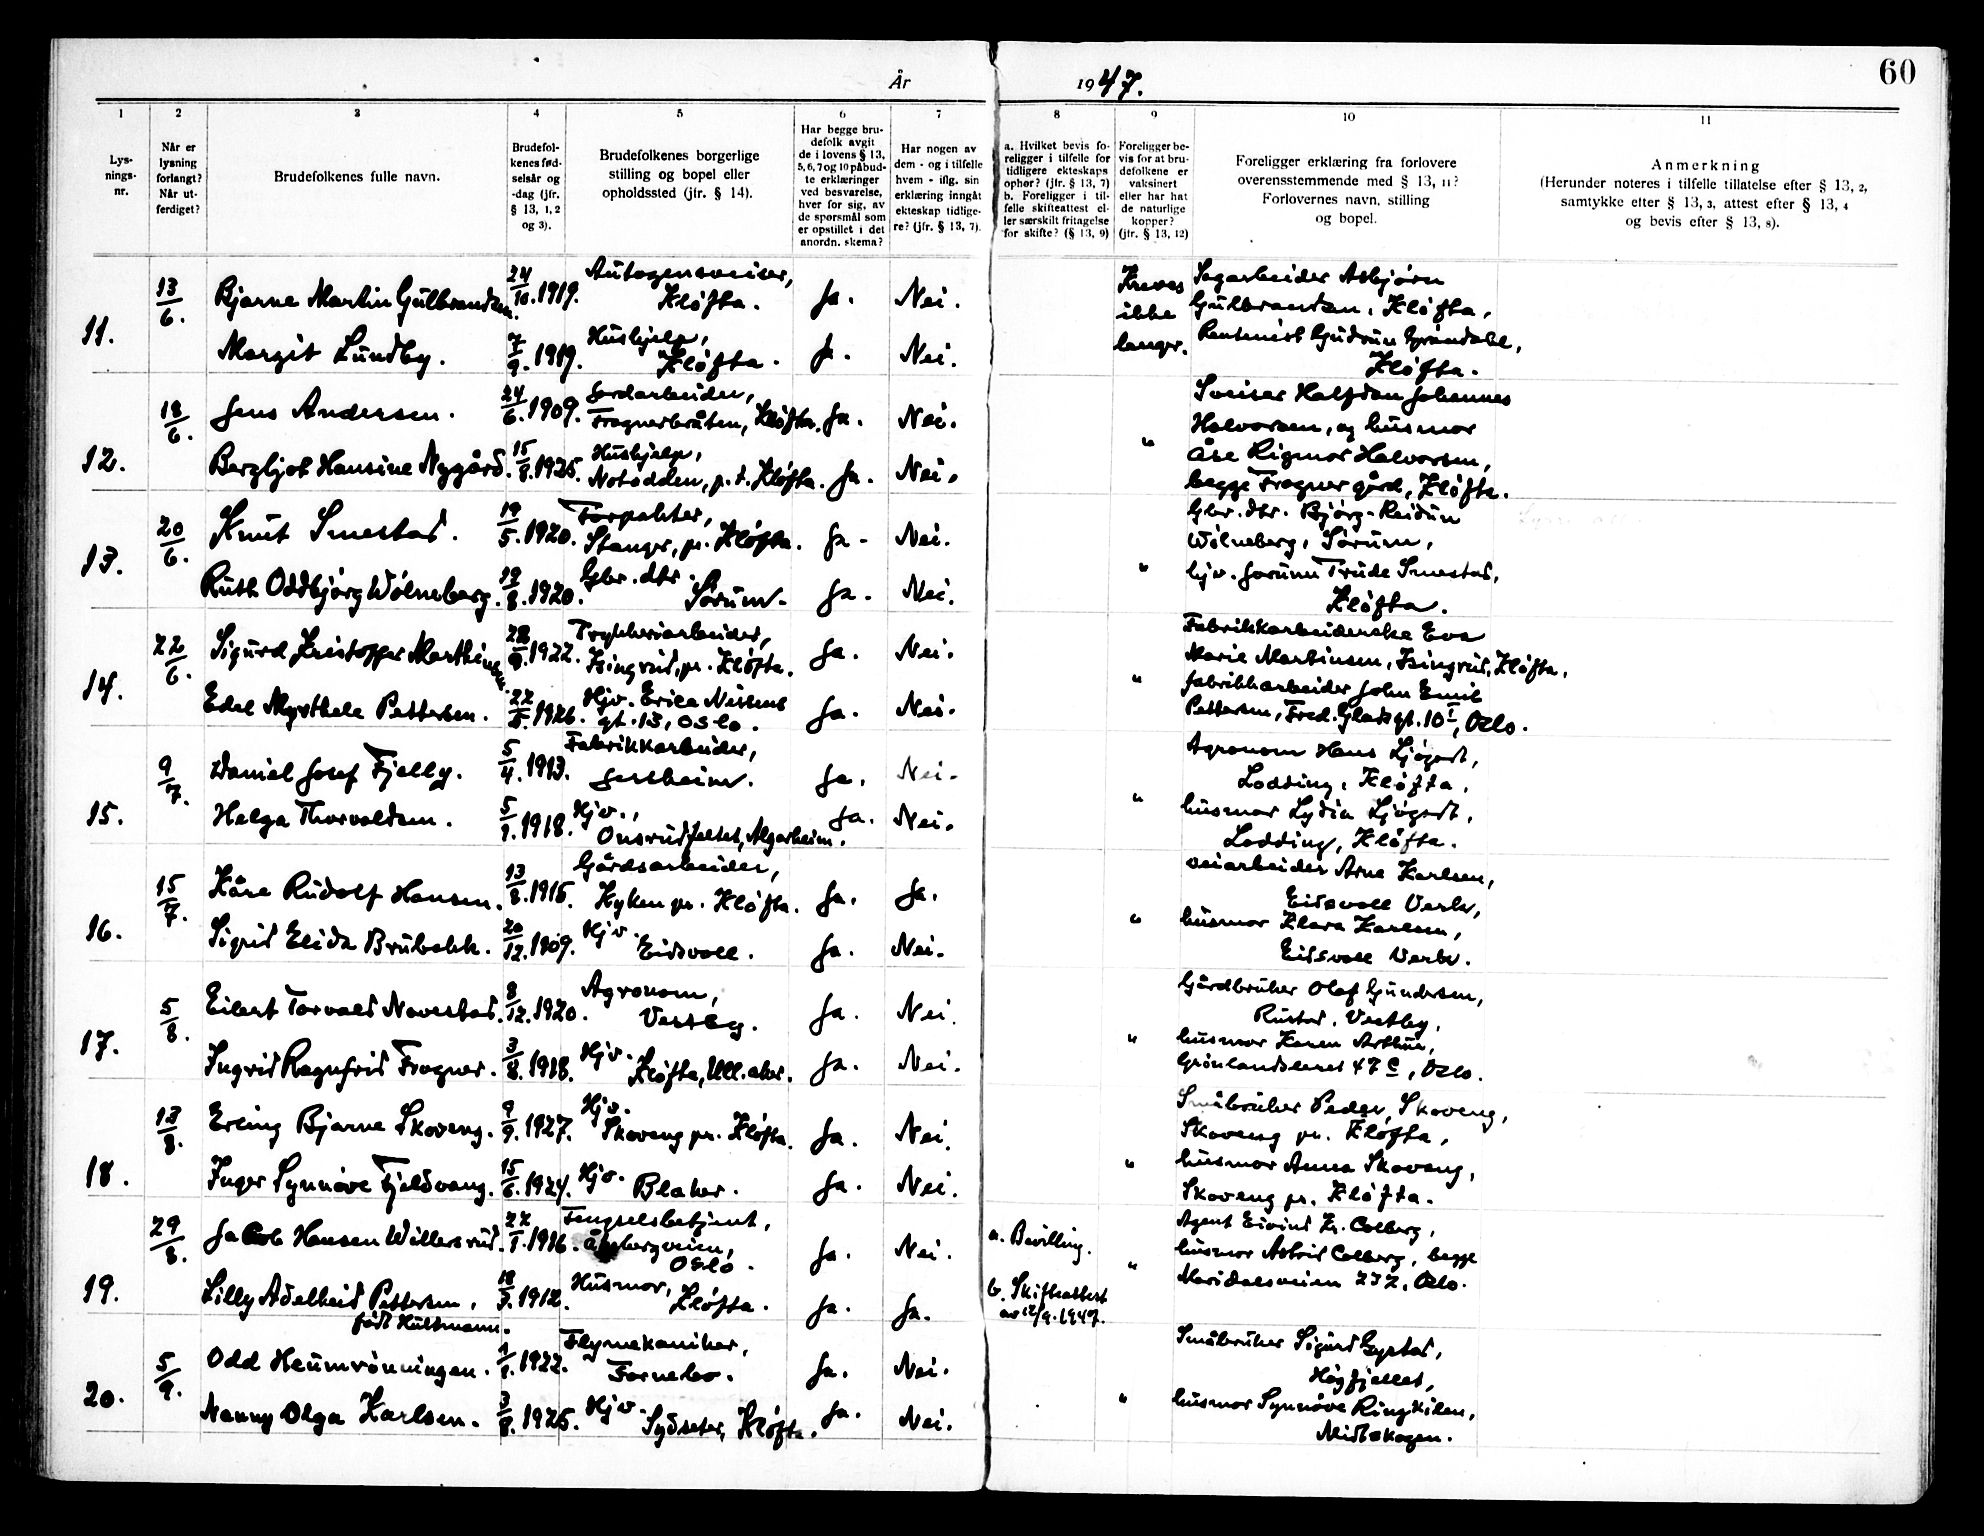 60
År 1947.
1 2 3 4 5 6 7 8 9 10 11
Lys-
nings-
nr.
Når er
lysning
forlangt?
Når ut-
ferdiget?
Brudefolkenes fulle navn.
Brudefol-
kenes fød-
selsår og
-dag (jfr.
§ 13, 1, 2
og 3).
Brudefolkenes borgerlige
stilling og bopel eller
opholdssted (jfr. § 14).
Har begge bru-
defolk avgit
de i lovens § 13,
5, 6, 7 og 10 påbud-
te erklæringer
ved besvarelse,
hver for sig, av
de spørsmål som
er opstillet i det
anordn. skema?
Har nogen av
dem - og i tilfelle
hvem - iflg. sin
erklæring inngått
ekteskap tidlige-
re? (jfr. § 13, 7).
a. Hvilket bevis fo-
religger i tilfelle for
tidligere ekteskaps
ophør? (jfr. § 13, 7)
b. Foreligger i til-
felle skifteattest el-
ler særskilt fritagelse
for skifte? (§ 13, 9)
Foreligger be-
vis for at bru-
defolkene er
vaksinert
eller har hat
de naturlige
kopper?
(jfr. § 13, 12)
Foreligger erklæring fra forlovere
overensstemmende med § 13, 11?
Forlovernes navn, stilling
og bopel.
Anmerkning
(Herunder noteres i tilfelle tillatelse efter § 13, 2,
samtykke efter § 13, 3, attest efter § 13, 4
og bevis efter § 13, 8).
11.
13/6.
Bjarne Martin Gulbrandsen. 24/10.1919. Autogensveiser,
Kløfta. Ja. Nei.
Margit Lundby. 7/9.1919. Hushjelp,
Kløfta. Ja. Nei.
Kreves
ikke
lenger.
Sagarbeider Asbjørn
Gulbrandsen, Kløfta,
Rentenist Gudrun Grøndahl,
Kløfta.
12.
18/6.
Jens Andersen. 24/6.1909. Jordarbeider,
Frognerbråten, Kløfta. Ja. Nei.
Bergljot Hansine Nygård. 15/8.1925. Hushjelp,
Notodden, p.t. Kløfta. Ja. Nei.
"
Sveiser Halfdan Johannes
Halvorsen, og husmor
Åse Rigmor Halvorsen,
begge Frogner gård, Kløfta.
13.
20/6.
Knut Smestad. 19/5.1920. Forpakter,
Stanger, pr. Kløfta. Ja. Nei.
Ruth Oddbjørg Wølneberg. 19/8.1920. Gbr. dtr.
Sørum. Ja. Nei.
"
Gbr. dtr. Bjørg-Reidun
Wølneberg, Sørum,
hjv. Jorunn Trude Smestad,
Kløfta.
14.
22/6.
Sigurd Kristoffer Marthinsen. 28/9.1922. Trykkeriarbeider,
Isingrud, pr. Kløfta. Ja. Nei.
Edel Myrthele Pettersen. 22/5.1926. Hjv. Erica Nissens
gt. 13, Oslo. Ja. Nei.
"
Fabrikkarbeiderske Eva
Marie Martinsen, Isingrud, Kløfta,
fabrikkarbeider John Emil
Pettersen, Fred. Glads gt. 10 I, Oslo.
15.
9/7.
Daniel Josef Fjelly. 5/4.1913. Fabrikkarbeider,
Jessheim. Ja. Nei.
Helga Thorvaldsen. 5/1.1918. Hjv.,
Onsrudfeltet, Algarheim. Ja. Nei.
"
Agronom Hans Ljøgodt,
Lodding, Kløfta,
husmor Lydia Ljøgodt,
Lodding, Kløfta.
16.
15/7.
Kåre Rudolf Hansen. 13/8.1915. Gårdsarbeider,
Hyken pr. Kløfta. Ja. Ja.
Sigrid Elida Brubakk. 20/12.1909. Hjv.
Eidsvoll. Ja. Nei.
"
veiarbeider Arne Karlsen,
Eidsvoll Verk,
husmor Klara Karlsen,
Eidsvoll Verk.
17.
5/8.
Eilert Torvald Navestad. 8/12.1920. Agronom,
Vestby. Ja. Nei.
Ingrid Ragnfrid Frogner. 3/8.1918. Hjv.
Kløfta, Ull.aker. Ja. Nei.
"
Gårdbruker Olaf Gundersen,
Rustad, Vestby,
husmor Karen Arthur,
Grønlandsleret 47 c, Oslo.
18.
13/8.
Erling Bjarne Skoveng. 9/9.1927. Hjv.
Skoveng pr. Kløfta. Ja. Nei.
Inger Synnøve Fjeldvang. 15/6.1924. Hjv.
Blaker. Ja. Nei.
"
Småbruker Peder Skoveng,
Skoveng pr. Kløfta,
husmor Anna Skoveng,
Skoveng pr. Kløfta.
19.
29/8.
Jacob Hansen Willersrud. 22/1.1916. Fengselsbetjent,
Oslo. Ja. Nei.
a. Bevilling.
Lilly Adelheid Pettersen,
født Hultmann. 18/3.1912. Husmor,
Kløfta. Ja. Ja.
b. Skifteattest
av 12/9.1947.
"
Agent Eivind Kr. Colberg,
husmor Astrid Colberg, begge
Maridalsveien 232, Oslo.
20.
5/9.
Odd Heumrønningen. 1/1.1922. Flymekaniker,
Fornebo. Ja. Nei.
Nanny Olga Karlsen. 3/8.1925. Hjv.
Sydseter, Kløfta. Ja. Nei.
"
Småbruker Sigurd Gystad,
Høgfjellet,
husmor Synnøve Ringkilen,
Midtskogen.